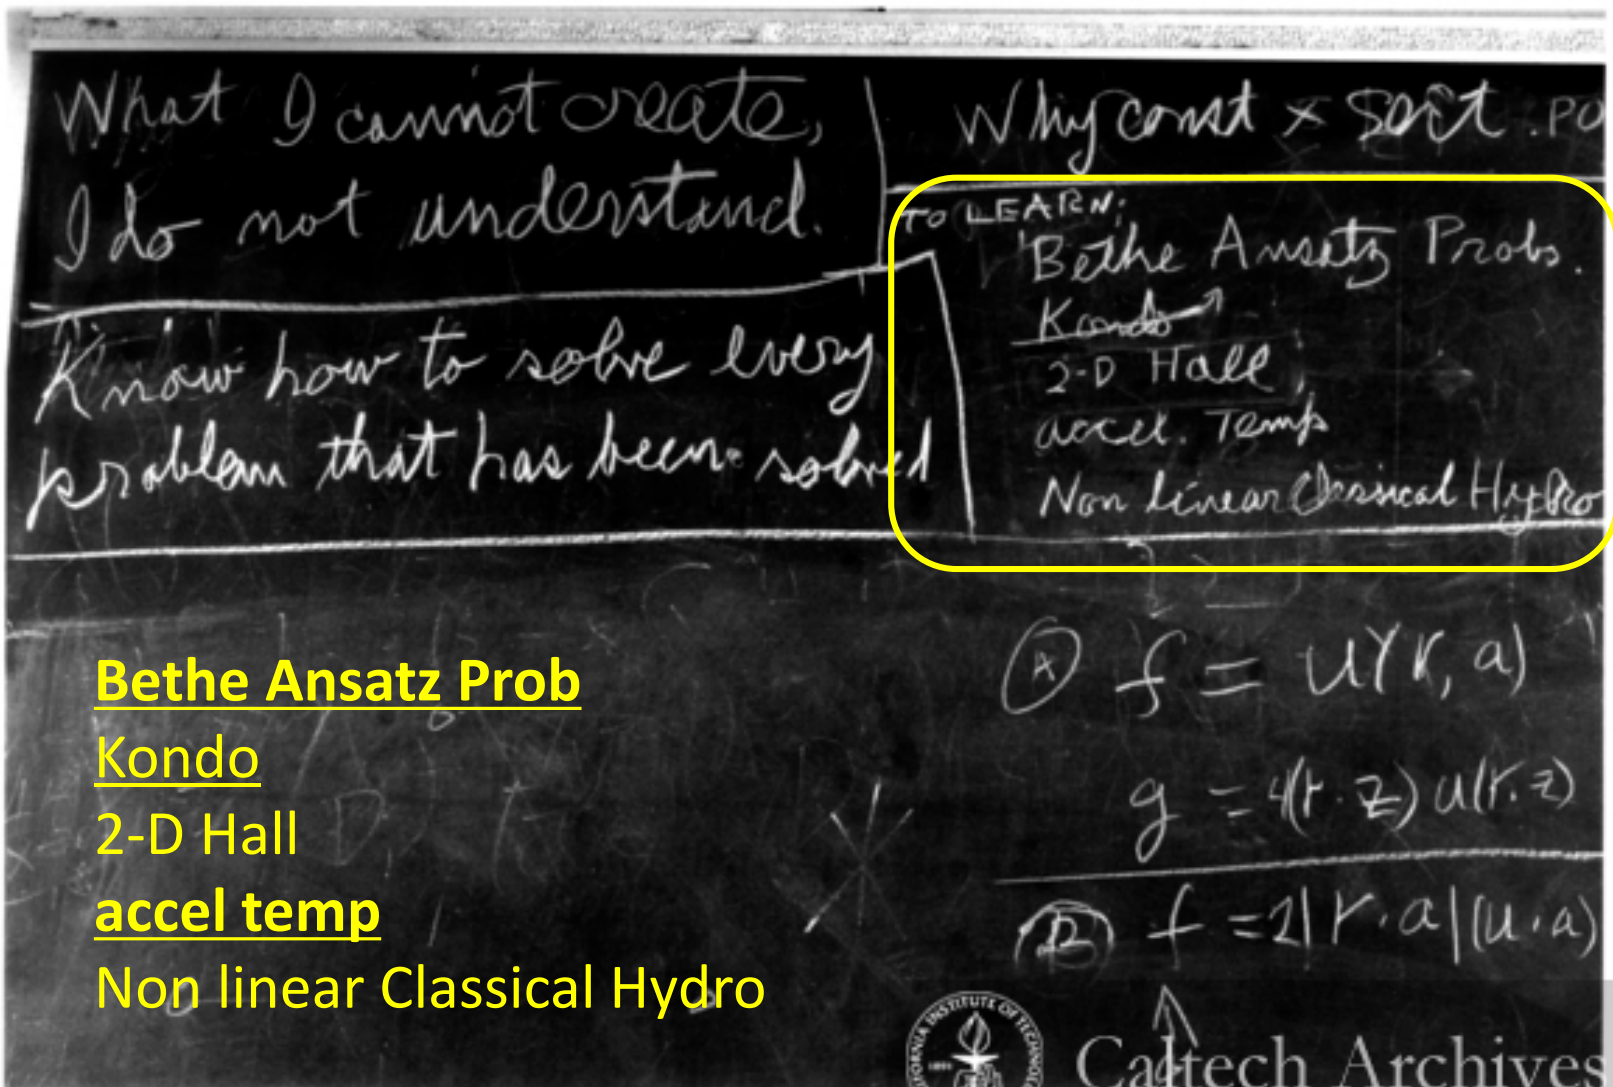 What I cannot create,
I do not understand.
Know how to solve every
problem that has been solved
Why const × sort . PO
TO LEARN:
Bethe Ansatz Probs.
Kondo
2-D Hall
accel. Temp
Non linear Classical Hydro
A f = u(r, a)
g = 4(r·z) u(r·z)
B f = 2|r·a|(u·a)
Bethe Ansatz Prob
Kondo
2-D Hall
accel temp
Non linear Classical Hydro
CALIFORNIA INSTITUTE OF TECHNOLOGY
1891
Caltech Archives